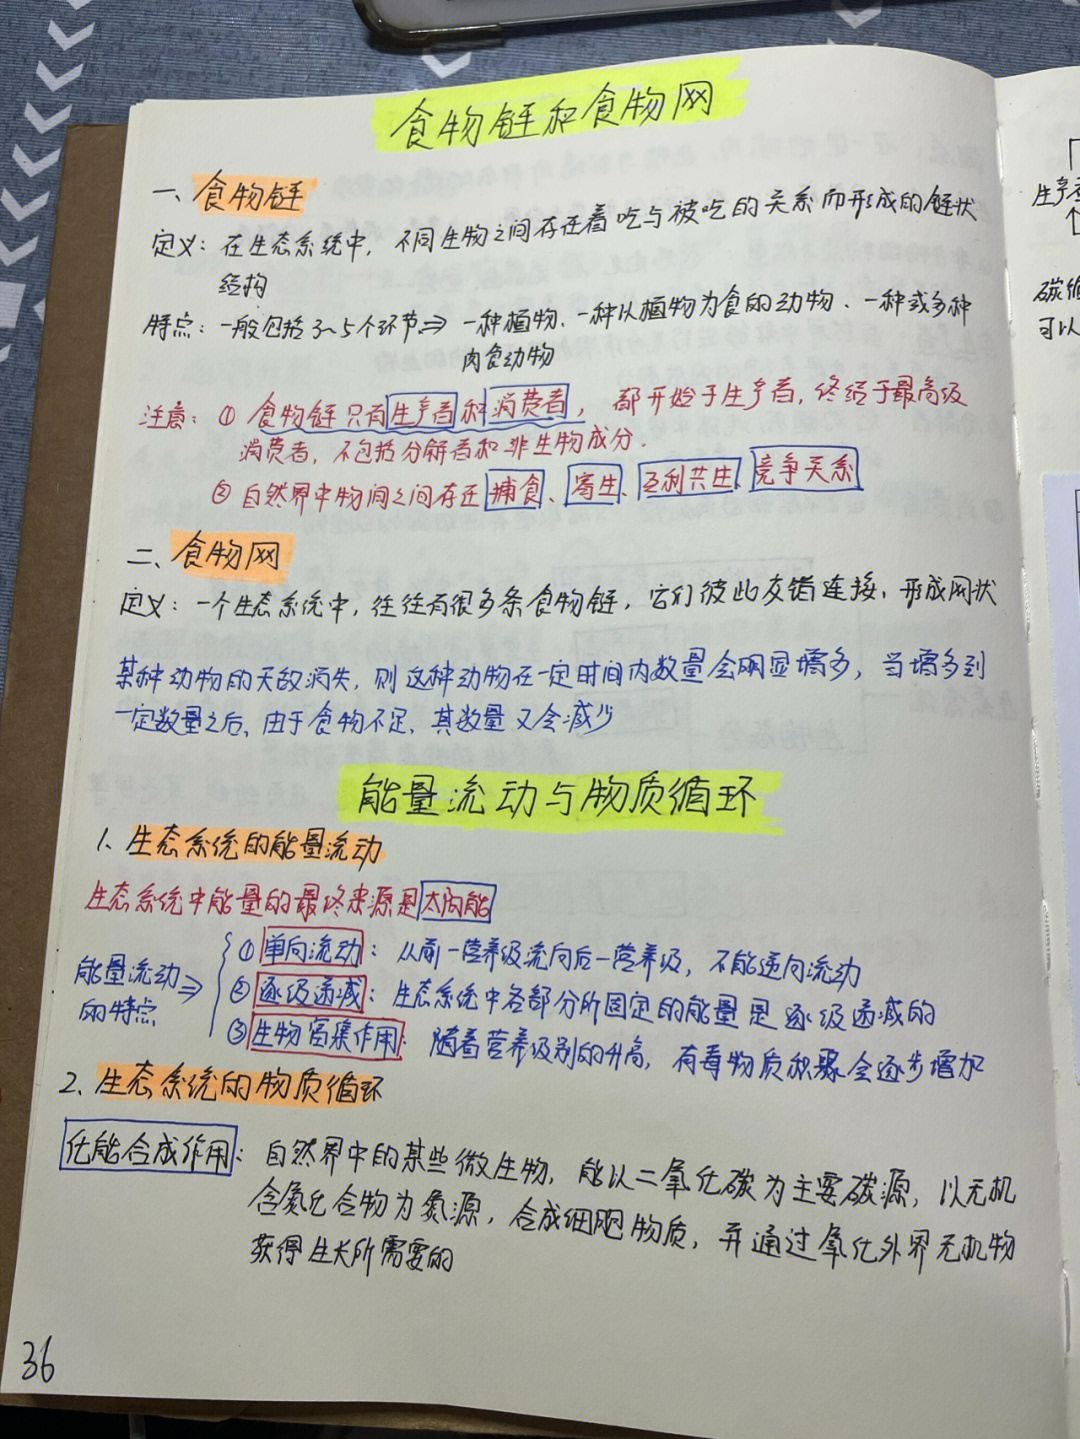 食物链和食物网
一、食物链
定义：在生态系统中，不同生物之间存在着吃与被吃的关系而形成的链状
结构
特点：一般包括3～5个环节⇒一种植物、一种以植物为食的动物、一种或多种
肉食动物
注意：①食物链只有生产者和消费者，都开始于生产者，终结于最高级
消费者，不包括分解者和非生物成分.
②自然界中物间之间存在捕食、寄生、互利共生、竞争关系
二、食物网
定义：一个生态系统中，往往有很多条食物链，它们彼此交错连接，形成网状
某种动物的天敌消失，则这种动物在一定时间内数量会明显增多，当增多到
一定数量之后，由于食物不足，其数量又会减少
能量流动与物质循环
1、生态系统的能量流动
生态系统中能量的最终来源是太阳能
能量流动⇒
的特点
①单向流动：从前一营养级流向后一营养级，不能逆向流动
②逐级递减：生态系统中各部分所固定的能量是逐级递减的
③生物富集作用：随着营养级别的升高，有毒物质积聚会逐步增加
2、生态系统的物质循环
化能合成作用：自然界中的某些微生物，能以二氧化碳为主要碳源，以无机
含氮化合物为氮源，合成细胞物质，并通过氧化外界无机物
获得生长所需要的
36
生产者
碳循
可以